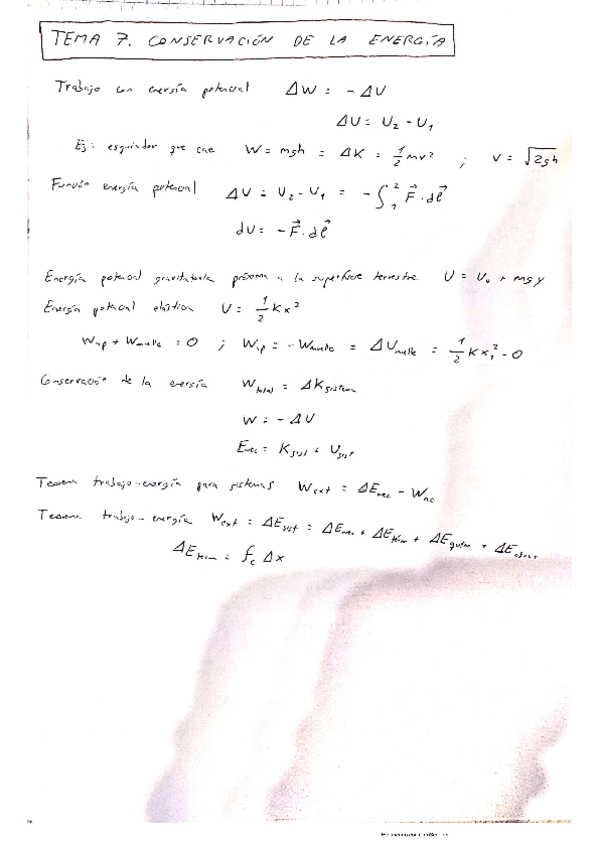 TEMA 7. CONSERVACIÓN DE LA ENERGÍA
Trabajo con energía potencial ΔW = -ΔU
ΔU = U₂ - U₁
Ej: esquiador que cae W = mgh = ΔK = 1/2 mv² ; v = √2gh
Función energía potencial ΔU = U₂ - U₁ = -∫₁² F⃗ · dℓ⃗
dU = -F⃗ · dℓ⃗
Energía potencial gravitatoria próxima a la superficie terrestre U = U₀ + mgy
Energía potencial elástica U = 1/2 Kx²
W_np + W_muelle = 0 ; W_np = -W_muelle = ΔU_muelle = 1/2 Kx₁² - 0
Conservación de la energía W_total = ΔK_sistema
W = -ΔU
E_mec = K_sist + U_sist
Teorema trabajo-energía para sistemas W_ext = ΔE_mec - W_nc
Teorema trabajo-energía W_ext = ΔE_sist = ΔE_mec + ΔE_térm + ΔE_quím + ΔE
ΔE_term = f_c Δx